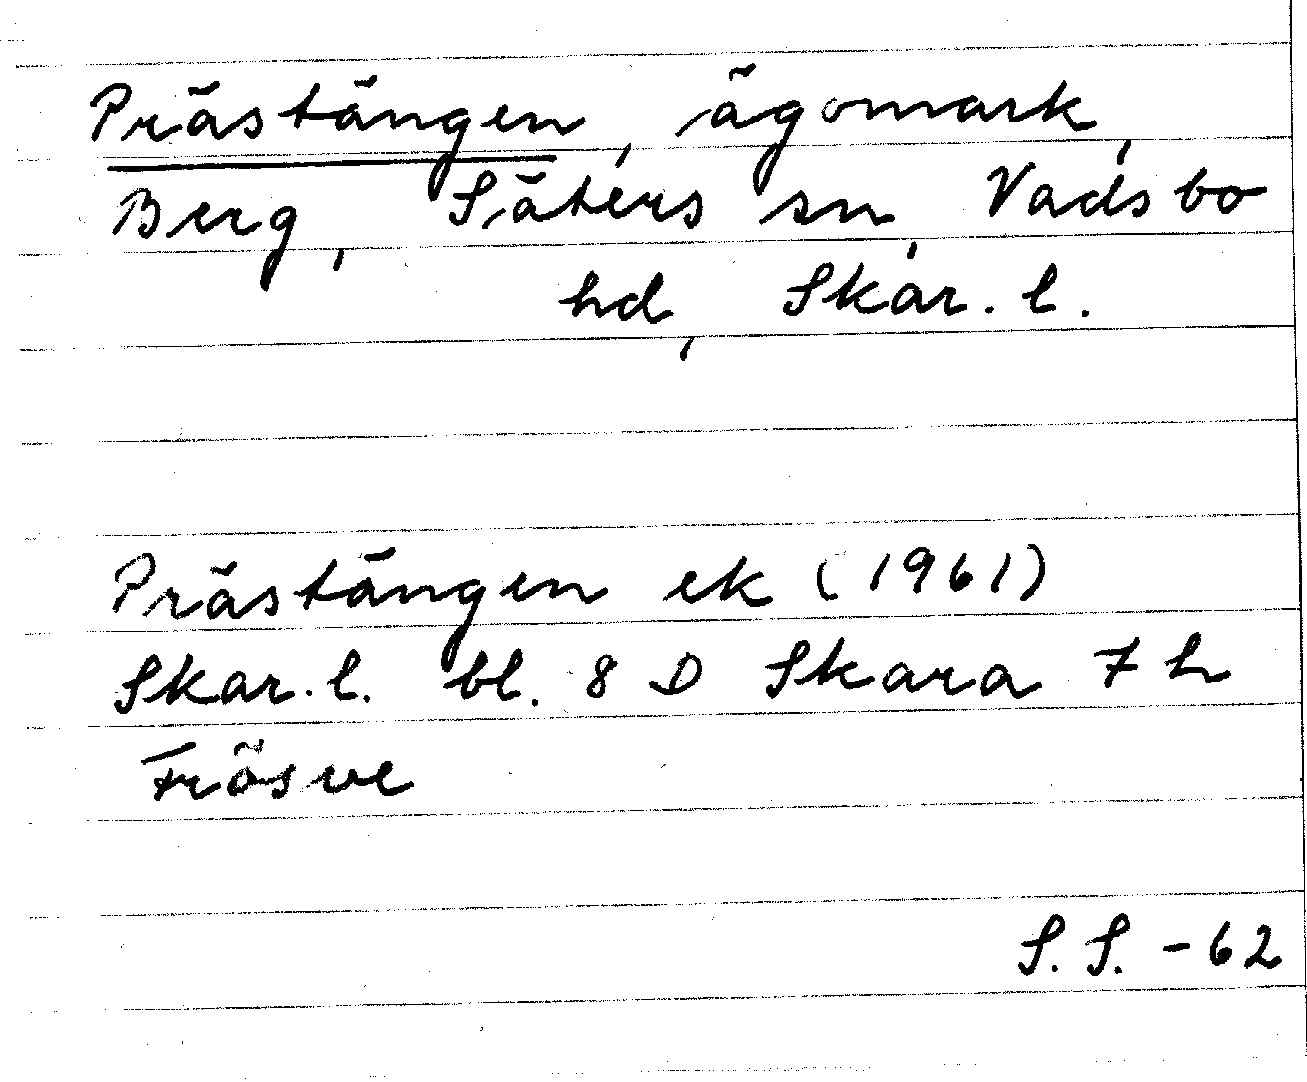 Prästängen, ägomark,
Berg, Säters sn, Vadsbo
hd, Skar. l.
Prästängen ek (1961)
Skar. l. bl. 8 D Skara 7 h
Frösve
S. S. - 62